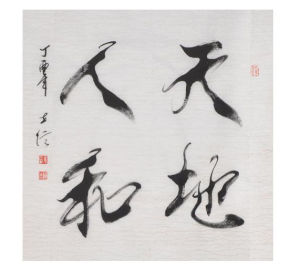 天地
人和
丁酉年